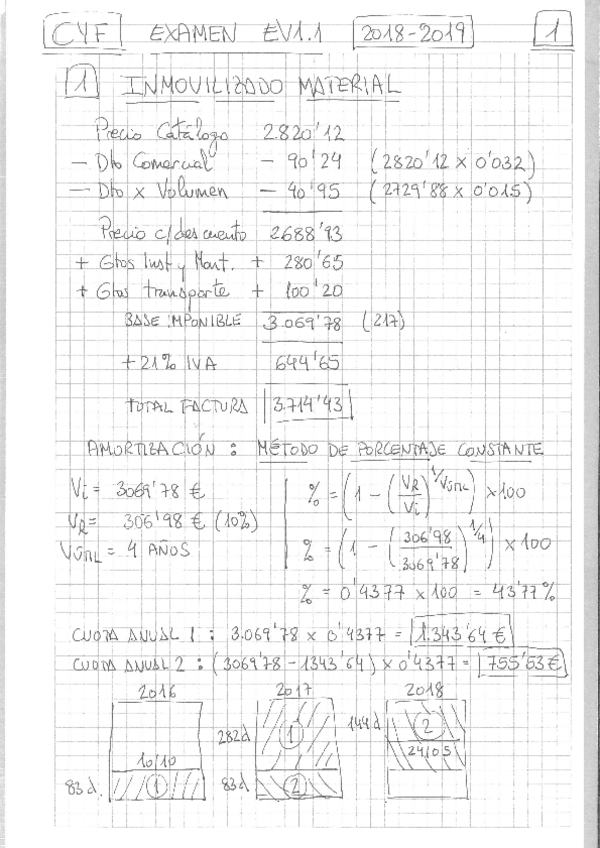 CYF EXAMEN EV1.1 2018-2019 1
1 INMOVILIZADO MATERIAL
Precio Catálogo 2820'12
- Dto Comercial - 90'24 (2820'12 x 0'032)
- Dto x Volumen - 40'95 (2729'88 x 0'015)
Precio c/descuento 2688'93
+ Gtos Inst y Mont. + 280'65
+ Gtos transporte + 100'20
BASE IMPONIBLE 3.069'78 (217)
+ 21% IVA 644'65
TOTAL FACTURA 3.714'43
AMORTIZACIÓN : MÉTODO DE PORCENTAJE CONSTANTE
Vi = 3069'78 € % = (1 - (VR/Vi)^1/Vútil) x 100
VR = 306'98 € (10%)
Vútil = 4 AÑOS % = (1 - (306'98/3069'78)^1/4) x 100
% = 0'4377 x 100 = 43'77%
CUOTA ANUAL 1 : 3.069'78 x 0'4377 = 1.343'64 €
CUOTA ANUAL 2 : (3069'78 - 1343'64) x 0'4377 = 755'53 €
2016 2017 2018
282d 1 144d 2
10/10 24/05
83d. 1 83d 2